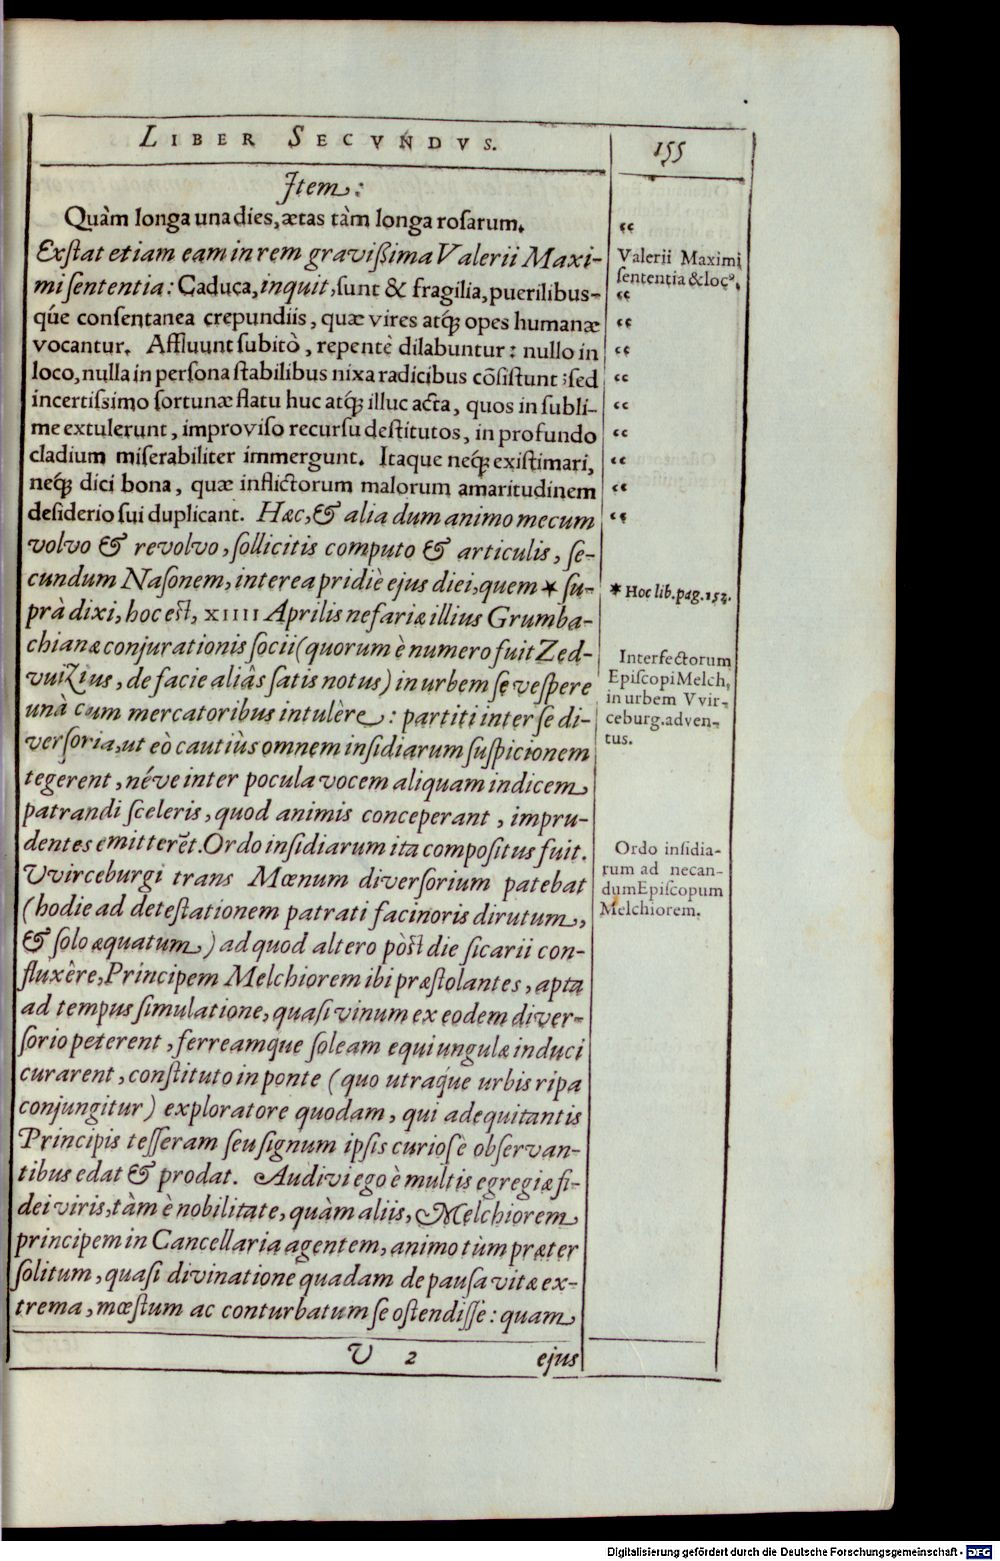 LIBER SECVNDVS.
155
Item:
Quàm longa una dies, ætas tàm longa rosarum.
Exstat etiam eam in rem gravissima Valerii Maxi-
mi sententia: Caduca, inquit, sunt & fragilia, puerilibus-
qúe consentanea crepundiis, quæ vires atq; opes humanæ
vocantur. Affluunt subitò, repentè dilabuntur: nullo in
loco, nulla in persona stabilibus nixa radicibus cõsistunt; sed
incertissimo fortunæ flatu huc atq; illuc acta, quos in subli-
me extulerunt, improviso recursu destitutos, in profundo
cladium miserabiliter immergunt. Itaque neq; existimari,
neq; dici bona, quæ inflictorum malorum amaritudinem
desiderio sui duplicant. Hæc, & alia dum animo mecum
volvo & revolvo, sollicitis computo & articulis, se-
cundum Nasonem, interea pridiè ejus diei, quem * su-
prà dixi, hoc est, XIIII Aprilis nefariæ illius Grumba-
chianæ conjurationis socii (quorum è numero fuit Zed-
vuizius, de facie aliâs satis notus) in urbem se vespere
unà cum mercatoribus intulère: partiti inter se di-
versoria, ut eò cautiùs omnem insidiarum suspicionem
tegerent, néve inter pocula vocem aliquam indicem
patrandi sceleris, quod animis conceperant, impru-
dentes emitterēt. Ordo insidiarum ita compositus fuit.
Vvirceburgi trans Mœnum diversorium patebat
(hodie ad detestationem patrati facinoris dirutum,
& solo æquatum) ad quod altero pòst die sicarii con-
fluxêre, Principem Melchiorem ibi præstolantes, apta
ad tempus simulatione, quasi vinum ex eodem diver-
sorio peterent, ferreamque soleam equi ungulæ induci
curarent, constituto in ponte (quo utraq́ue urbis ripa
conjungitur) exploratore quodam, qui adequitantis
Principis tesseram seu signum ipsis curiosè observan-
tibus edat & prodat. Audivi ego è multis egregiæ fi-
dei viris, tàm è nobilitate, quàm aliis, Melchiorem
principem in Cancellaria agentem, animo tùm præter
solitum, quasi divinatione quadam de pausa vitæ ex-
trema, mœstum ac conturbatum se ostendisse: quam
V 2
ejus
“
Valerii Maximi
sententia & locꝰ.
“
“
“
“
“
“
“
“
“
* Hoc lib. pag. 152.
Interfectorum
Episcopi Melch.
in urbem Vvir-
ceburg. adven-
tus.
Ordo insidia-
rum ad necan-
dum Episcopum
Melchiorem.
Digitalisierung gefördert durch die Deutsche Forschungsgemeinschaft - DFG